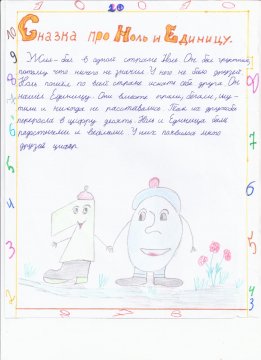 10
Сказка про Ноль и Единицу.
Жил-был в одной стране Ноль. Он был грустным,
потому что ничего не значил. У него не было друзей.
Ноль пошел по всей стране искать себе друга. Он
нашел Единицу. Они вместе играли, бегали, шу-
тили и никогда не расставались. Так их дружба
переросла в цифру десять. Ноль и Единица были
радостными и весёлыми. У них появилось много
друзей цифр.